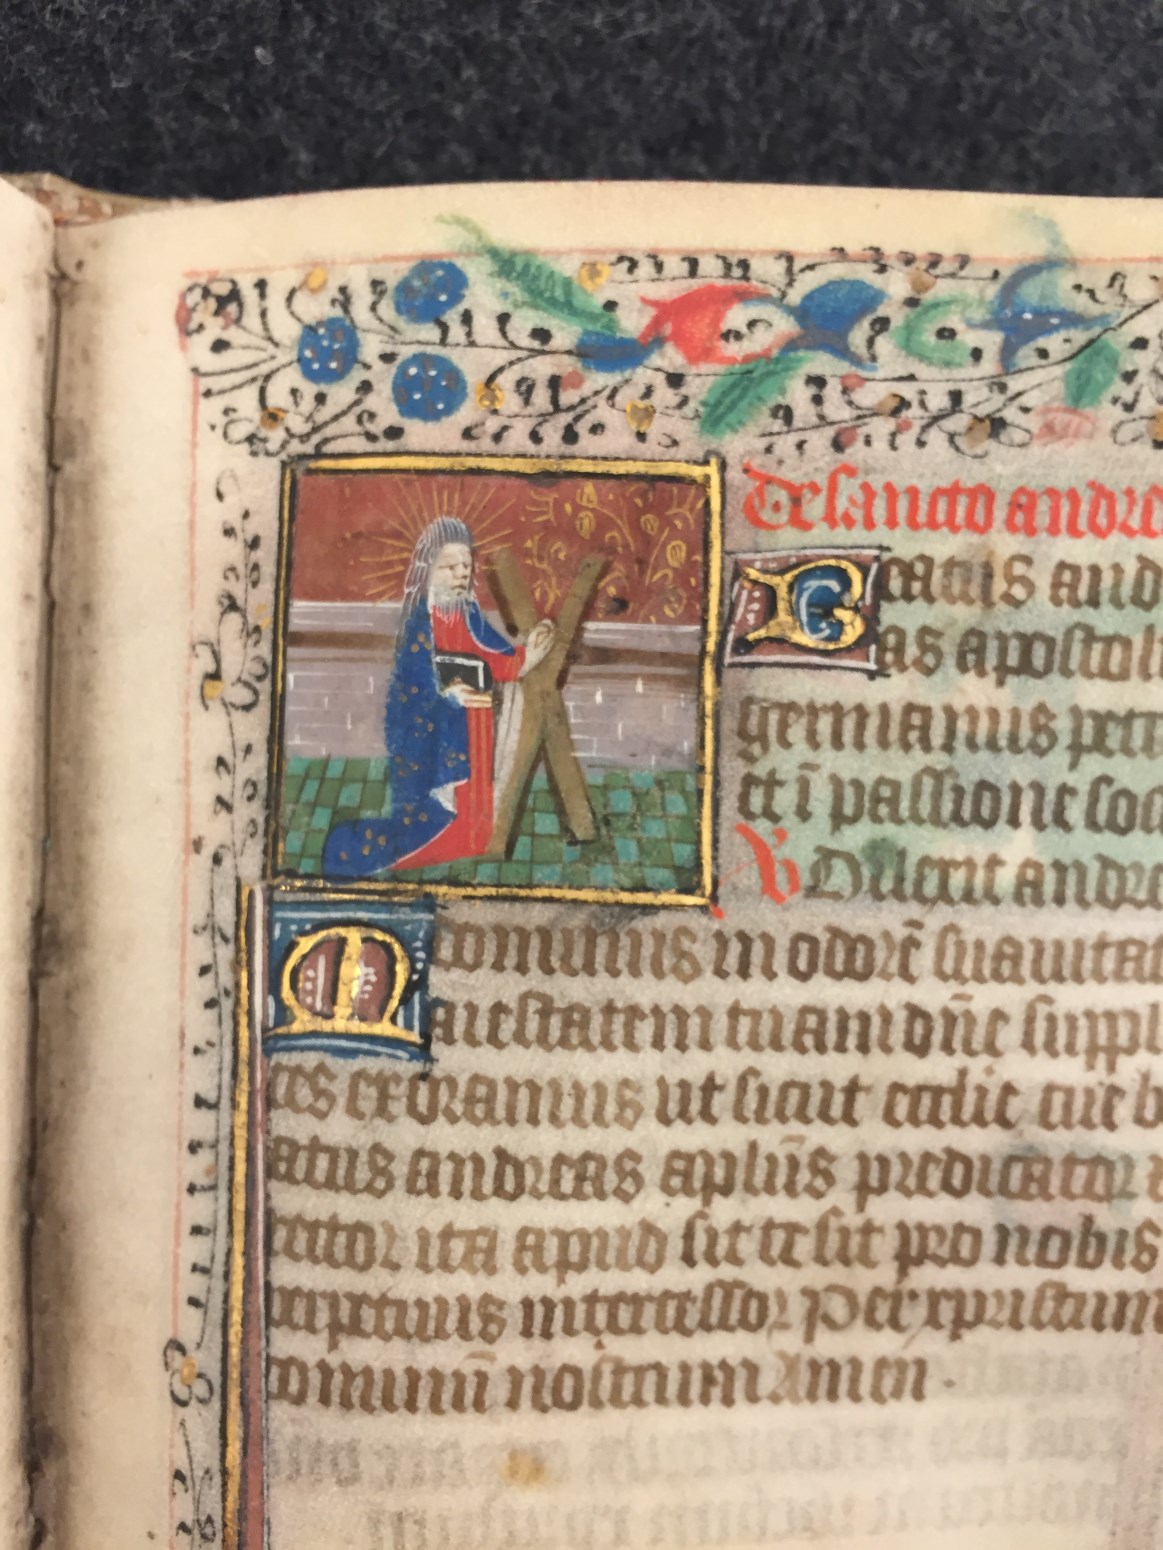 De sancto andre
Beatus and
as apostoli
germanus petri
et ī passione soc
V Dilexit andre
dominus in odorē suauitat
Maiestatem tuam dn̄e suppli
ces exoramus ut sicut ecclie tue b
atus andreas aplūs predicator
rector ita apud sit te sit pro nobis
perpetuus intercessor Per xpristum
dominū nostrum Amen